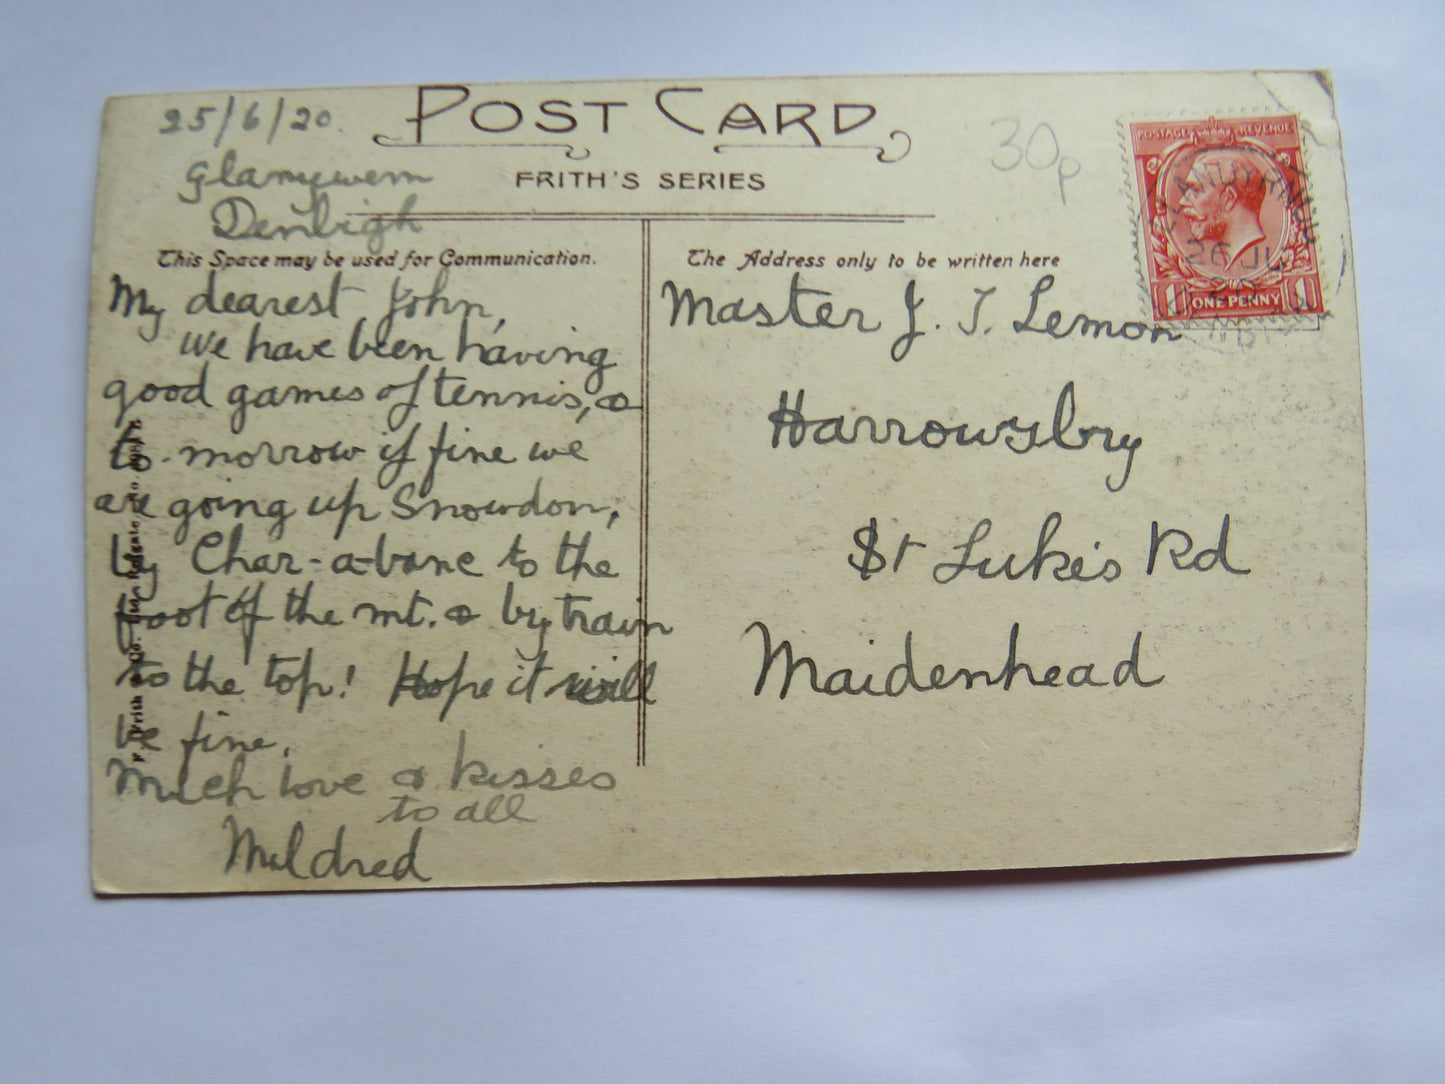 25/6/20.
POST CARD
FRITH'S SERIES
30p
Glanywern
Denbigh
This Space may be used for Communication.
The Address only to be written here
My dearest John,
We have been having
good games of tennis, &
to-morrow if fine we
are going up Snowdon,
by Char-a-banc to the
foot of the mt. & by train
to the top! Hope it will
be fine.
Much love & kisses
to all
Mildred
Master J. T. Lemon
Harrowsbry
St Luke's Rd
Maidenhead
POSTAGE REVENUE
1 ONE PENNY 1
LLANDYRNOG
26 JU
20
F. Frith & Co. Ltd., Reigate